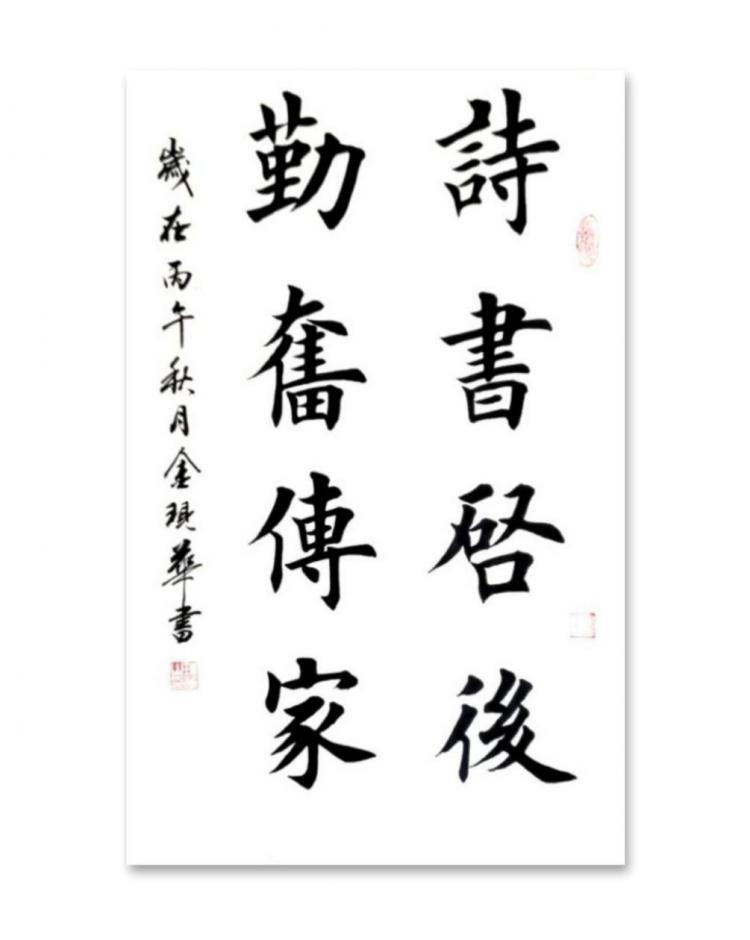 詩書啓後
勤奮傳家
歲在丙午秋月金琨華書